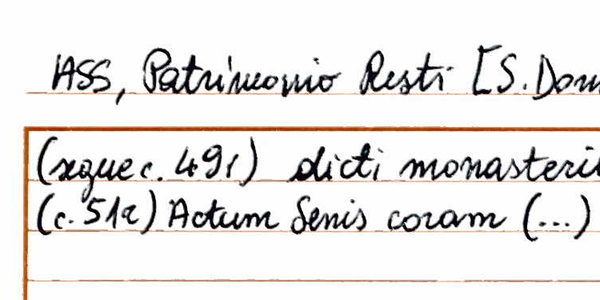 ASS, Patrimonio Resti [S. Dom
(segue c. 49r) dicti monasterii
(c. 51r) Actum Senis coram (...)